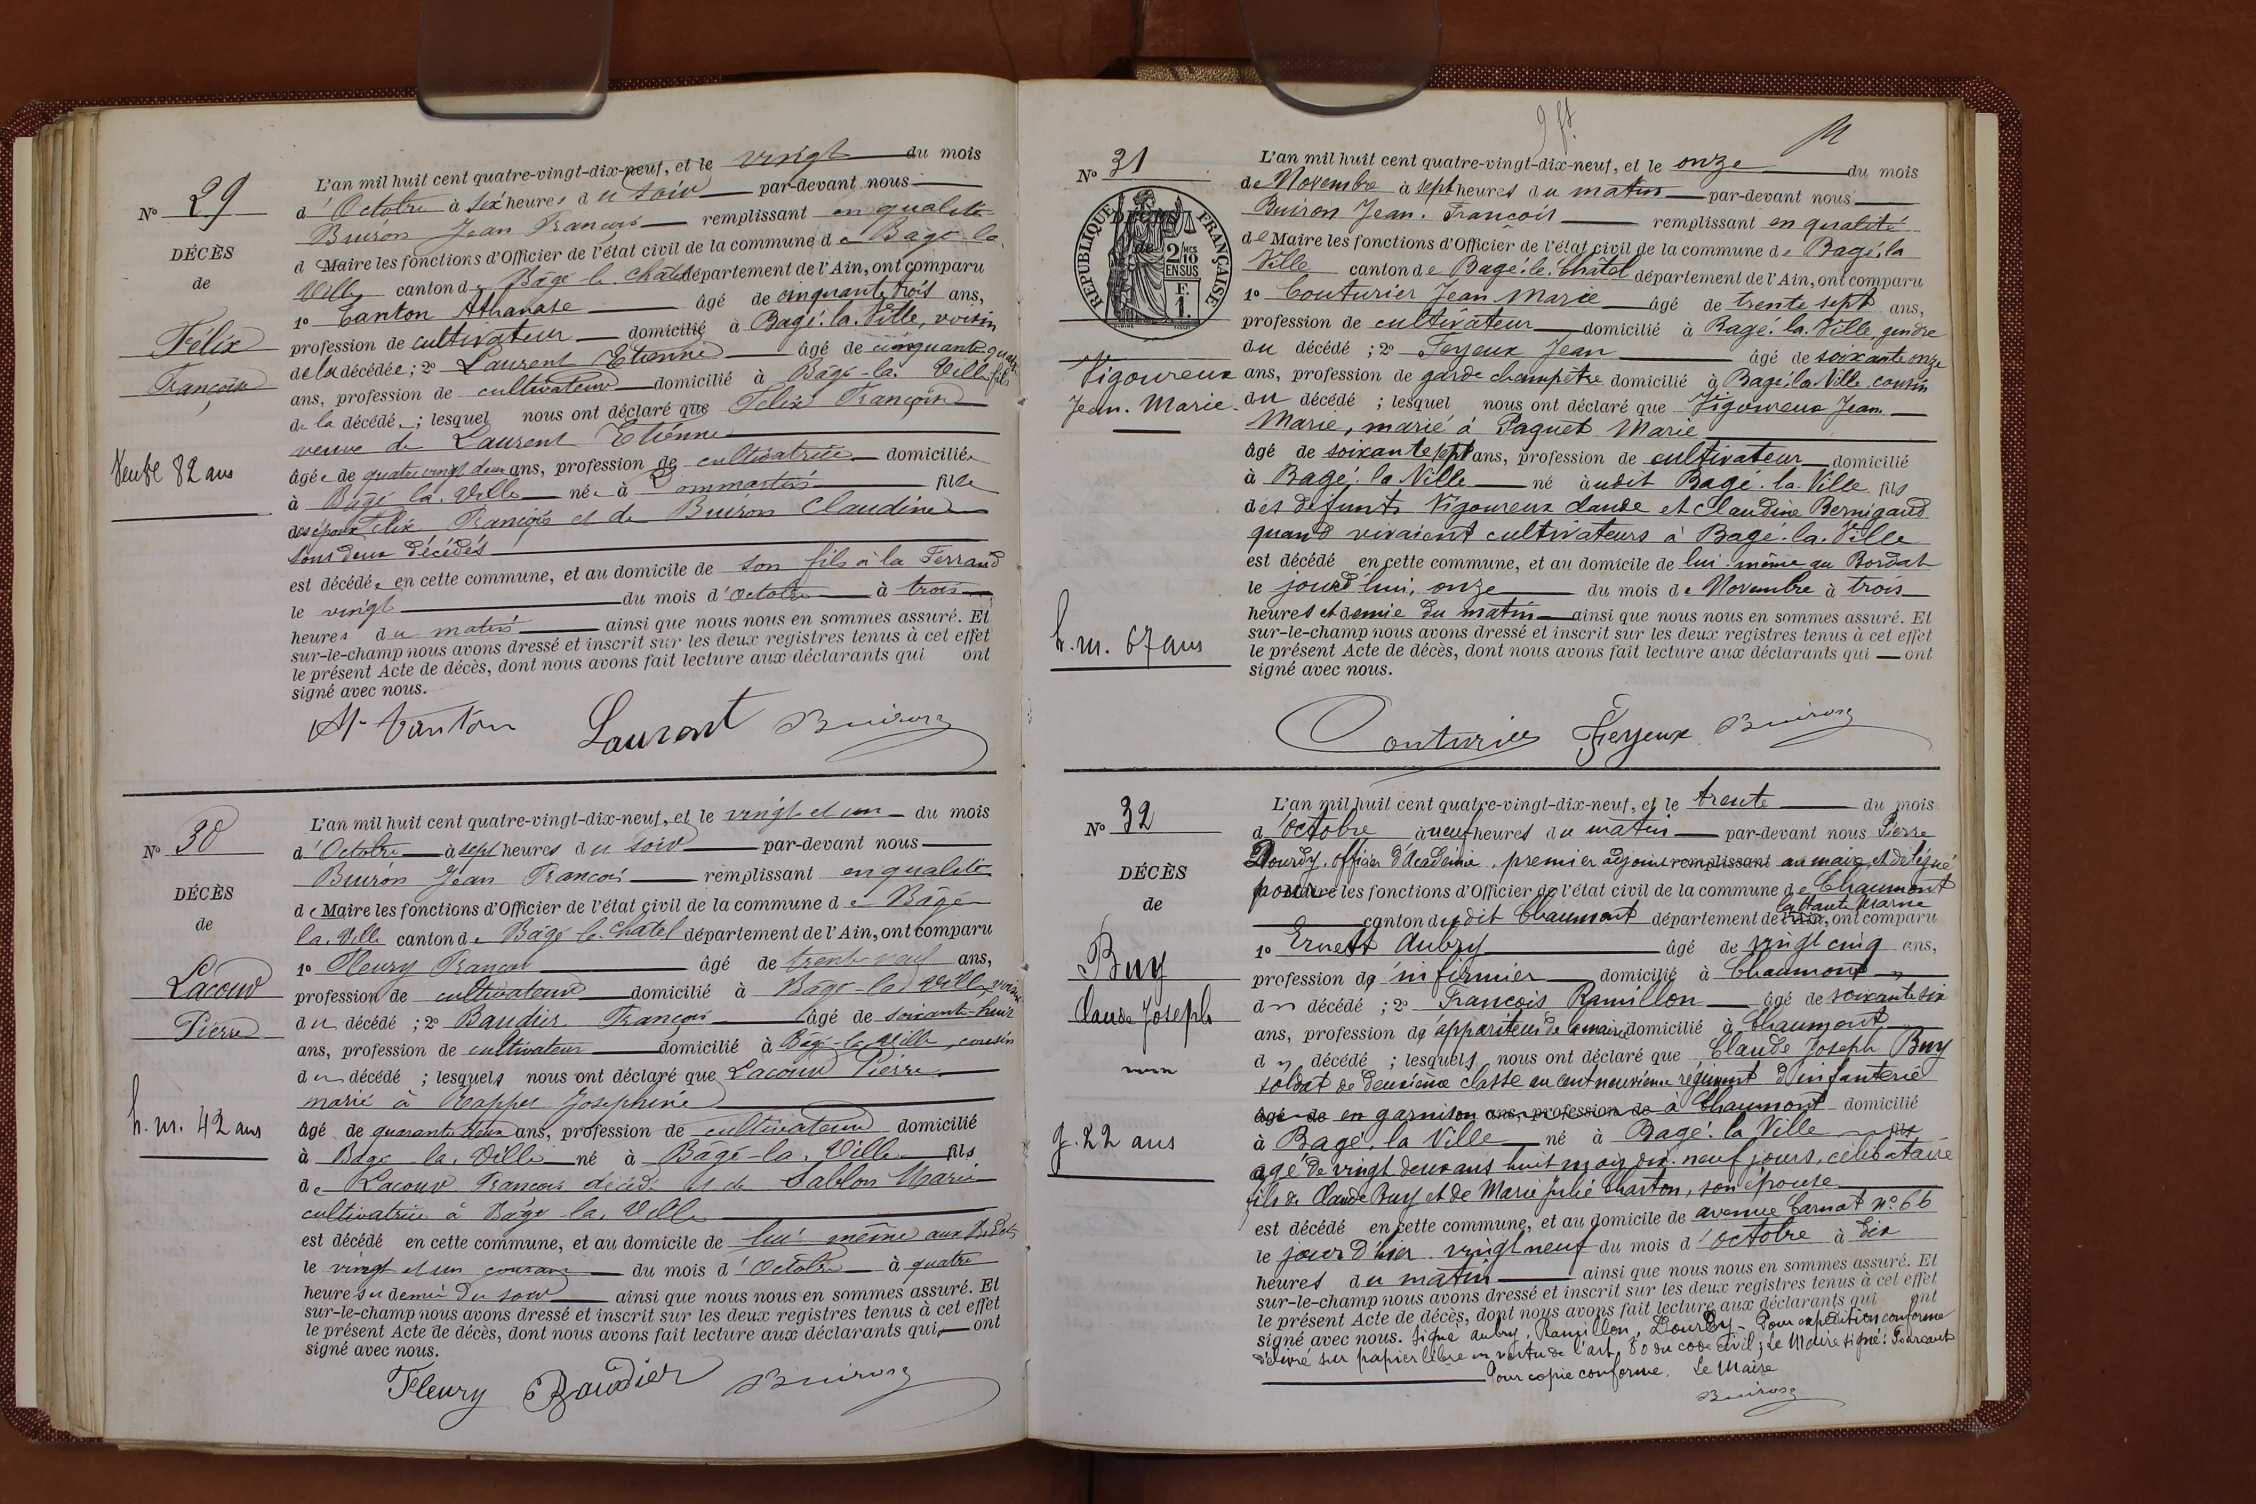 N° 29
DÉCÈS
de
Félix
Françoise
Veuve 82 ans
L'an mil huit cent quatre-vingt-dix-neuf, et le vingt du mois
d'Octobre à six heures du soir par-devant nous
Buiron Jean François remplissant en qualité
de Maire les fonctions d'Officier de l'état civil de la commune de Bâgé-la-
Ville canton de Bâgé-le-Châtel département de l'Ain, ont comparu
1° Canton Athanase âgé de cinquante trois ans,
profession de cultivateur domicilié à Bagé-la-Ville, voisin
de la décédée ; 2° Laurent Etienne âgé de cinquante quatre
ans, profession de cultivateur domicilié à Bâgé-la-Ville, fils
de la décédée ; lesquel nous ont déclaré que Félix Françoise
veuve de Laurent Etienne
âgée de quatre vingt deux ans, profession de cultivatrice domiciliée
à Bâgé la Ville née à Dommartin fille
des époux Félix François et de Buiron Claudine
tous deux décédés
est décédée en cette commune, et au domicile de son fils à la Ferrand
le vingt du mois d'Octobre à trois
heures du matin ainsi que nous nous en sommes assuré. Et
sur-le-champ nous avons dressé et inscrit sur les deux registres tenus à cet effet
le présent Acte de décès, dont nous avons fait lecture aux déclarants qui ont
signé avec nous.
Laurent Buiron
N° 30
DÉCÈS
de
Lacour
Pierre
h. m. 42 ans
L'an mil huit cent quatre-vingt-dix-neuf, et le vingt et un du mois
d'Octobre à sept heures du soir par-devant nous
Buiron Jean François remplissant en qualité
de Maire les fonctions d'Officier de l'état civil de la commune de Bâgé-
la-Ville canton de Bâgé-le-Châtel département de l'Ain, ont comparu
1° Fleury François âgé de trente neuf ans,
profession de cultivateur domicilié à Bâgé-la-Ville, voisin
du décédé ; 2° Baudier François âgé de soixante-huit
ans, profession de cultivateur domicilié à Bâgé-la-Ville, cousin
du décédé ; lesquels nous ont déclaré que Lacour Pierre
marié à Josephine
âgé de quarante deux ans, profession de cultivateur domicilié
à Bâgé-la-Ville né à Bâgé-la-Ville fils
de Lacour François décédé et de Sablon Marie
cultivatrice à Bâgé-la-Ville
est décédé en cette commune, et au domicile de lui même aux
le vingt et un courant du mois d'Octobre à quatre
heures et demie du soir ainsi que nous nous en sommes assuré. Et
sur-le-champ nous avons dressé et inscrit sur les deux registres tenus à cet effet
le présent Acte de décès, dont nous avons fait lecture aux déclarants qui ont
signé avec nous.
Fleury Baudier Buiron
N° 31
RÉPUBLIQUE FRANÇAISE
2/10 EN SUS
F. 1.
Vigoureux
Jean-Marie
h. m. 67 ans
L'an mil huit cent quatre-vingt-dix-neuf, et le onze du mois
de Novembre à sept heures du matin par-devant nous
Buiron Jean-François remplissant en qualité
de Maire les fonctions d'Officier de l'état civil de la commune de Bagé-la
Ville canton de Bagé-le-Châtel département de l'Ain, ont comparu
1° Couturier Jean Marie âgé de trente sept ans,
profession de cultivateur domicilié à Bagé-la-Ville, gendre
du décédé ; 2° Feyeux Jean âgé de soixante onze
ans, profession de garde champêtre domicilié à Bagé-la-Ville cousin
du décédé ; lesquel nous ont déclaré que Vigoureux Jean
Marie, marié à Paquet Marie
âgé de soixante sept ans, profession de cultivateur domicilié
à Bagé-la-Ville né audit Bagé-la-Ville fils
des défunts Vigoureux Claude et Claudine Bernigaud
quand vivaient cultivateurs à Bagé-la-Ville
est décédé en cette commune, et au domicile de lui-même au Bordat
le jourd'hui, onze du mois de Novembre à trois
heures et demie du matin ainsi que nous nous en sommes assuré. Et
sur-le-champ nous avons dressé et inscrit sur les deux registres tenus à cet effet
le présent Acte de décès, dont nous avons fait lecture aux déclarants qui ont
signé avec nous.
Couturier Feyeux Buiron
N° 32
DÉCÈS
de
Buy
Claude Joseph
g. 22 ans
L'an mil huit cent quatre-vingt-dix-neuf, et le trente du mois
d'Octobre à neuf heures du matin par-devant nous Pierre
Dourdy, officier d'Académie, premier adjoint remplissant au maire, et délégué
pour Maire les fonctions d'Officier de l'état civil de la commune de Chaumont
canton dudit Chaumont département de la Haute Marne l'Ain, ont comparu
1° Ernest Aubry âgé de vingt cinq ans,
profession de infirmier domicilié à Chaumont
d décédé ; 2° François Ramillon âgé de soixante six
ans, profession de appariteur de la mairie domicilié à Chaumont
d décédé ; lesquels nous ont déclaré que Claude Joseph Buy
soldat de deuxième classe au cent neuvième régiment d'infanterie
âgé de en garnison ans, profession de à Chaumont domicilié
à Bagé-la-Ville né à Bagé-la-Ville fils
âgé de vingt deux ans huit mois dix-neuf jours, célibataire
fils de Claude Buy et de Marie Julie Charton, son épouse
est décédé en cette commune, et au domicile de avenue Carnot n° 66
le jour d'hier vingt neuf du mois d'Octobre à dix
heures du matin ainsi que nous nous en sommes assuré. Et
sur-le-champ nous avons dressé et inscrit sur les deux registres tenus à cet effet
le présent Acte de décès, dont nous avons fait lecture aux déclarants qui ont
signé avec nous. Signé Aubry, Ramillon, Dourdy - Pour expédition conforme
délivré sur papier libre en vertu de l'art. 80 du code civil ; Le Maire signé : Fourcaut
Pour copie conforme. Le Maire
Buiron